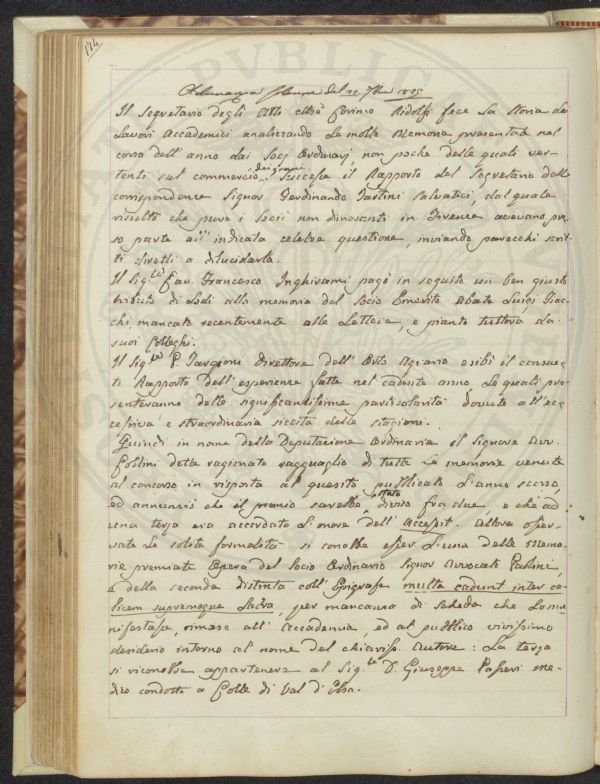 174
Adunanza Solenne del 25. 7bre 1825
Il Segretario degli Atti Cosimo Ridolfi fece la storia dei
Lavori Accademici analizzando le molte Memorie presentate nel
corso dell'anno dai Socj Ordinarj, non poche delle quali ver-
tenti sul commercio dei grani. Successe il Rapporto del Segretario delle
corrispondenze Signor Ferdinando Tartini Salvatici, dal quale
risultò che pure i Socii non dimoranti in Firenze avevano pre-
so parte all' indicata celebre questione, inviando parecchi scrit-
ti diretti a dilucidarla.
Il Sig.re Cav. Francesco Inghirami pagò in seguito un ben giusto
tributo di Lodi alla memoria del Socio Emerito Abate Luigi Fiac-
chi, mancato recentemente alle Lettere, e pianto tuttora da
suoi Colleghi.
Il Sig.re P. Targioni Direttore dell'Orto Agrario esibì il consue-
to Rapporto dell'esperienze fatte nel cadente anno, le quali pre-
senteranno delle significantissime particolarità dovute all'ec-
cessiva e straordinaria siccità delle stagioni.
Quindi in nome della Deputazione Ordinaria il Signore Avv.
Collini dette ragionato ragguaglio di tutte le memorie venute
al concorso in risposta al quesito pubblicato l'anno scorso,
ed annunziò che il premio sarebbe stato diviso fra due, e che ad
una terza era accordato l'onore dell'Accessit. Allora osser-
vate le solite formalità si conobbe esser l'una delle Memo-
rie premiate Opera del Socio Ordinario Signor Avvocato Paolini,
e della seconda distinta coll'Epigrafe multa cadunt inter ca-
licem supremaque labra, per mancanza di scheda che lo ma-
nifestasse, rimase all'Accademia, ed al pubblico vivissimo
desiderio intorno al nome del chiariss. Autore: La terza
si riconobbe appartenere al Sig.re D. Giuseppe Passeri me-
dico condotto a Colle di Val d'Elsa.